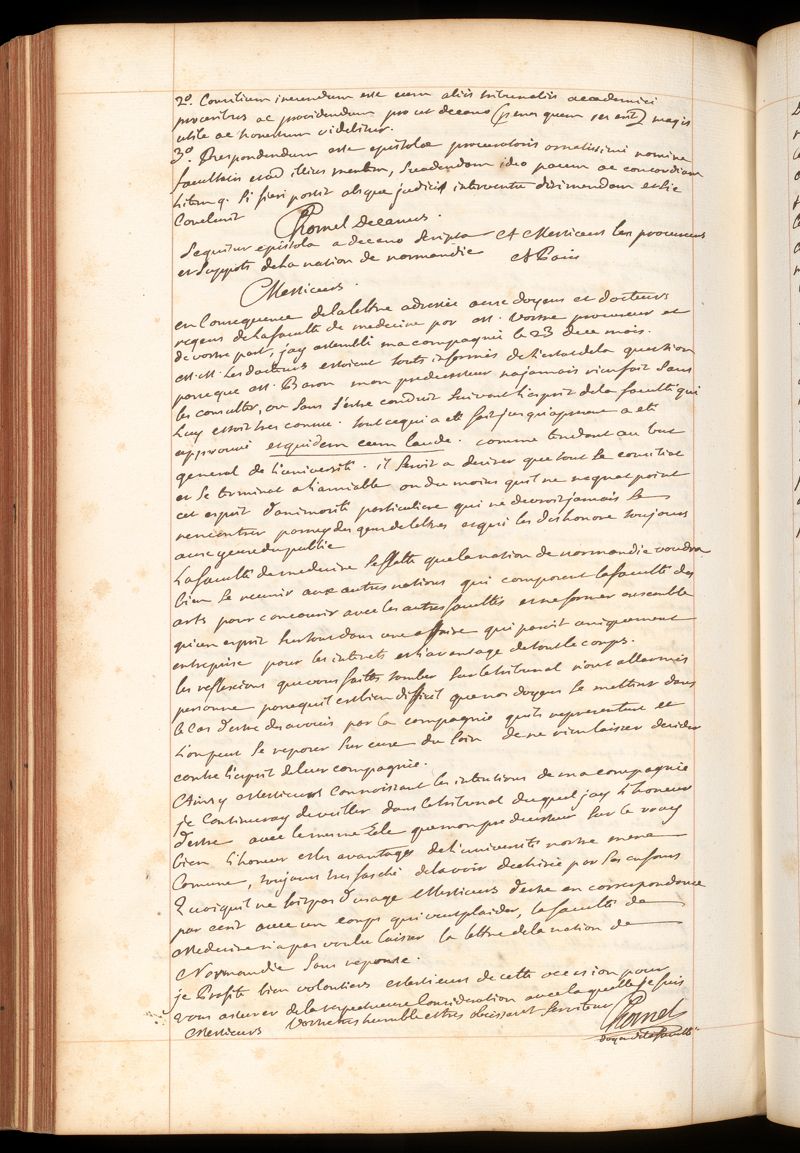 2º. Consilium ineundum esse cum aliis tribunalis academici
proceribus ac providendum prout decano (penes quem res erit) magis
utile ac honestum videbitur.
3º. Respondendum esse epistolæ procuratoris ornatissimi nomine
facultatis et ad illius mentem, suadendam ideo pacem ac concordiam
litemq. si fieri possit absque judicis interventu dirimendam et sic
conclusit Chomel Decanus.
Sequitur epistola a decano scripta A Messieurs les procureur
et suppots de la nation de normandie A Paris
Messieurs.
en consequence de la lettre adressée aux doyen et docteurs
regens de la faculté de medecine par M. Vostre procureur et
de vostre part, j'ay assemblé ma compagnie le 23 de ce mois.
M.M. les docteurs estoient touts informés de l'estat de la question
parceque M. Baron mon predecesseur n'a jamais rien fait sans
les consulter, ou sans s'estre conduit suivant l'esprit de la faculté qui
luy estoit tres connu. tout ce qui a eté fait jusqu'a present a eté
approuvé et quidem cum laude. comme tendant au but
general de l'université. il seroit a desirer que tout se conciliat
et se terminat a l'amiable ou du moins qu'il ne regnat point
cet esprit d'animosité particuliere qui ne devroit jamais se
rencontrer parmy des gens de lettres et qui les deshonore toujours
aux yeux du public
La faculté de medecine se flatte que la nation de normandie voudra
bien se reunir aux autres nations qui composent la faculté des
arts pour concourir avec les autres facultés et ne former ensemble
qu'un esprit surtout dans une affaire qui paroit uniquement
entreprise pour les interets et l'avantage de tout le corps.
les reflexions que vous faites tomber sur le tribunal n'ont allarmés
personne parcequ'il est bien difficil que nos doyens se mettent dans
le cas d'estre desavoués par la compagnie qu'ils representent et
l'on peut se reposer sur eux du soin de ne rien laisser decider
contre l'esprit de leur compagnie.
Ainsy Messieurs connoissant les intentions de ma compagnie
je continueray de veiller dans le tribunal duquel j'ay l'honneur
d'estre avec le mesme zele que mon predecesseur sur le vray
bien l'honeur et les avantages de l'université nostre mere
comune, toujours tres faché de la voir dechirée par ses enfans
Quoiqu'il ne soit pas d'usage Messieurs d'estre en correspondance
par ecrit avec un corps qui veut plaider, la faculté de
Medecine n'a pas voulu laisser la lettre de la nation de
Normandie sans reponse.
je Profite bien volontiers Messieurs de cette occasion pour
vous assurer de la respectueuse consideration avec laquelle je suis
Messieurs Vostre tres humble et tres obeissant serviteur Chomel
doyen de la faculté